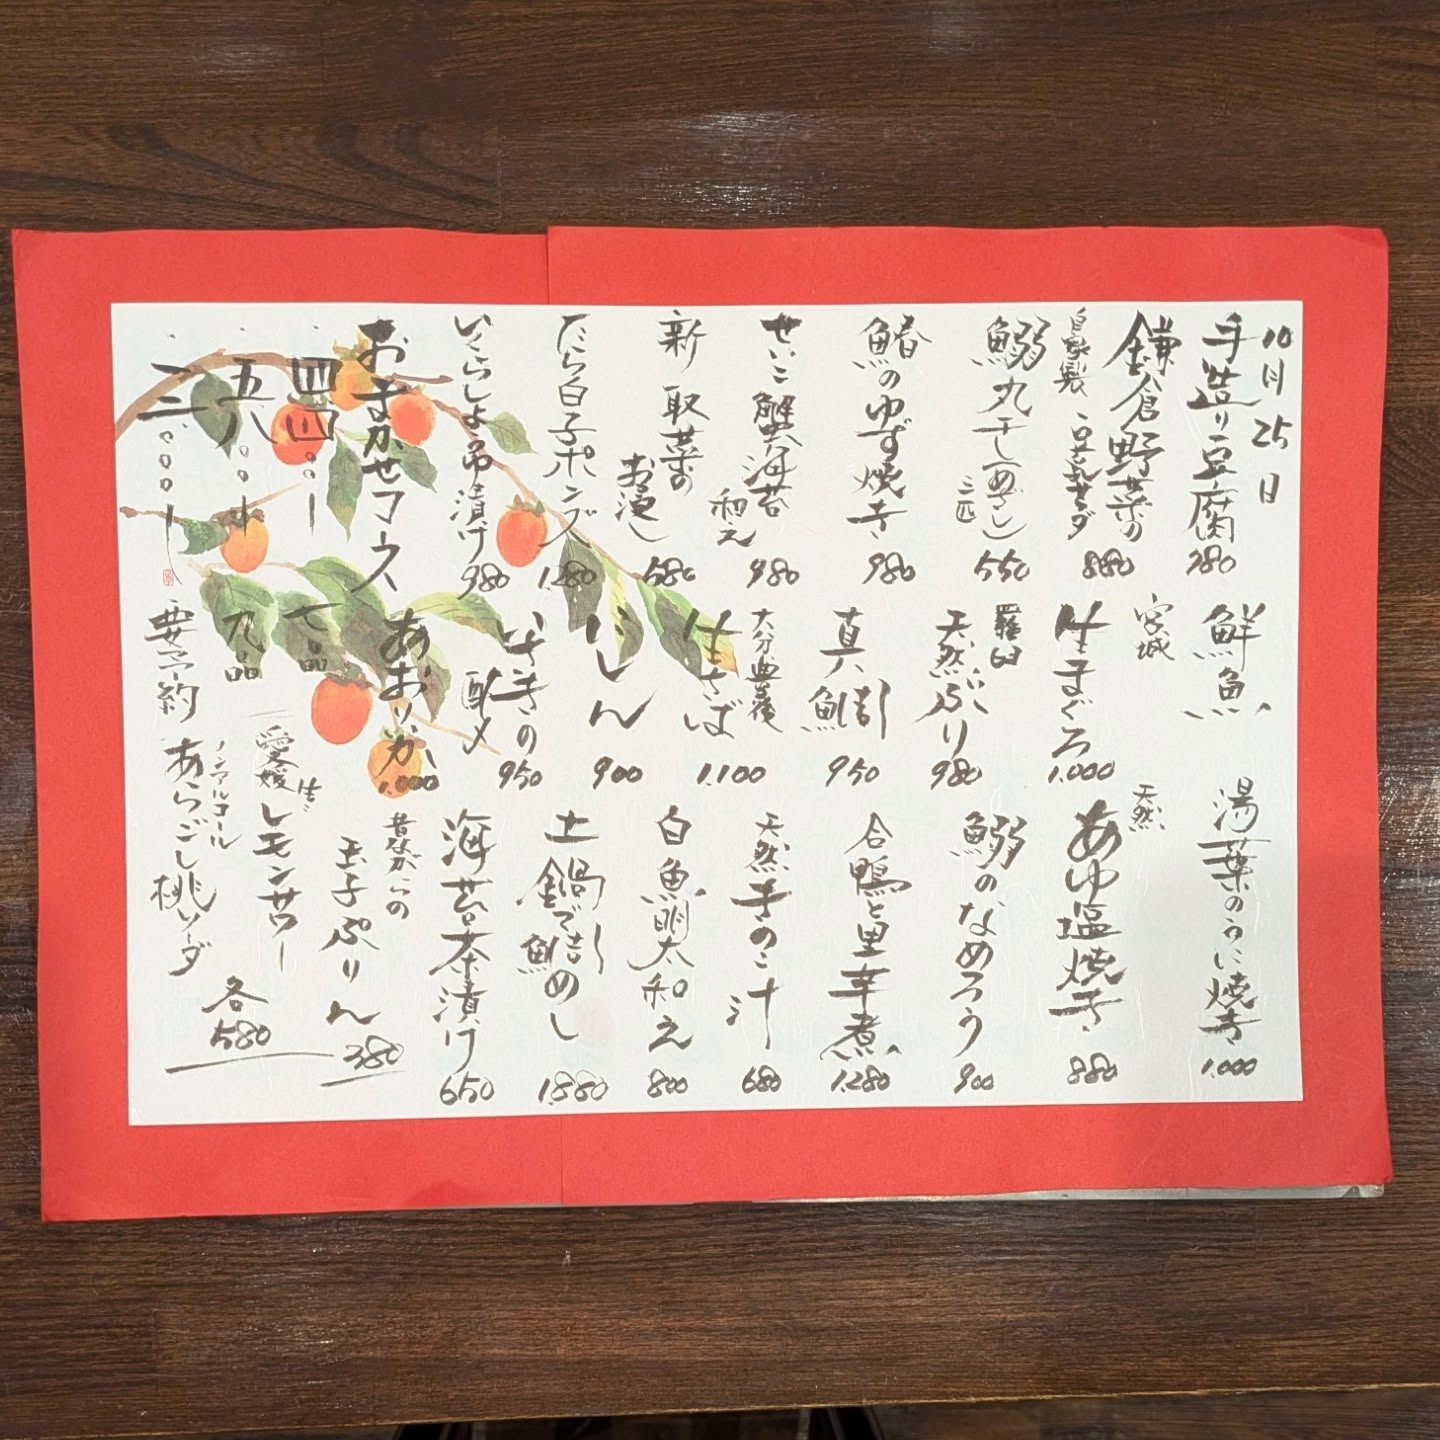 10月25日
手造り豆腐
380
鎌倉野菜の
自家製
豆乳サラダ
880
鰯丸干し(めざし)
三匹
550
鰆のゆず焼き
980
せいこ蟹海苔
和え
980
新取菜の
お浸し
580
たら白子ポンズ
1.280
いくらしょう油漬け
980
おまかせコース
四四〇〇ー
七品
五八〇〇ー
九品
要予約
鮮魚
宮城
生まぐろ
1.000
羅臼
天然ぶり
980
真鯛
950
大分豊後
生さば
1.100
にしん
900
いさきの
酢〆
950
あおりいか
1.000
湯葉のうに焼き
1.000
天然
あゆ塩焼き
880
鰯のなめろう
900
合鴨と里芋煮
1.280
天然きのこ汁
680
白魚明太和え
800
土鍋で鯛めし
1.880
海苔茶漬け
650
昔ながらの
玉子ぷりん
380
愛媛
生
レモンサワー
ノンアルコール
あらごし桃ソーダ
各
580